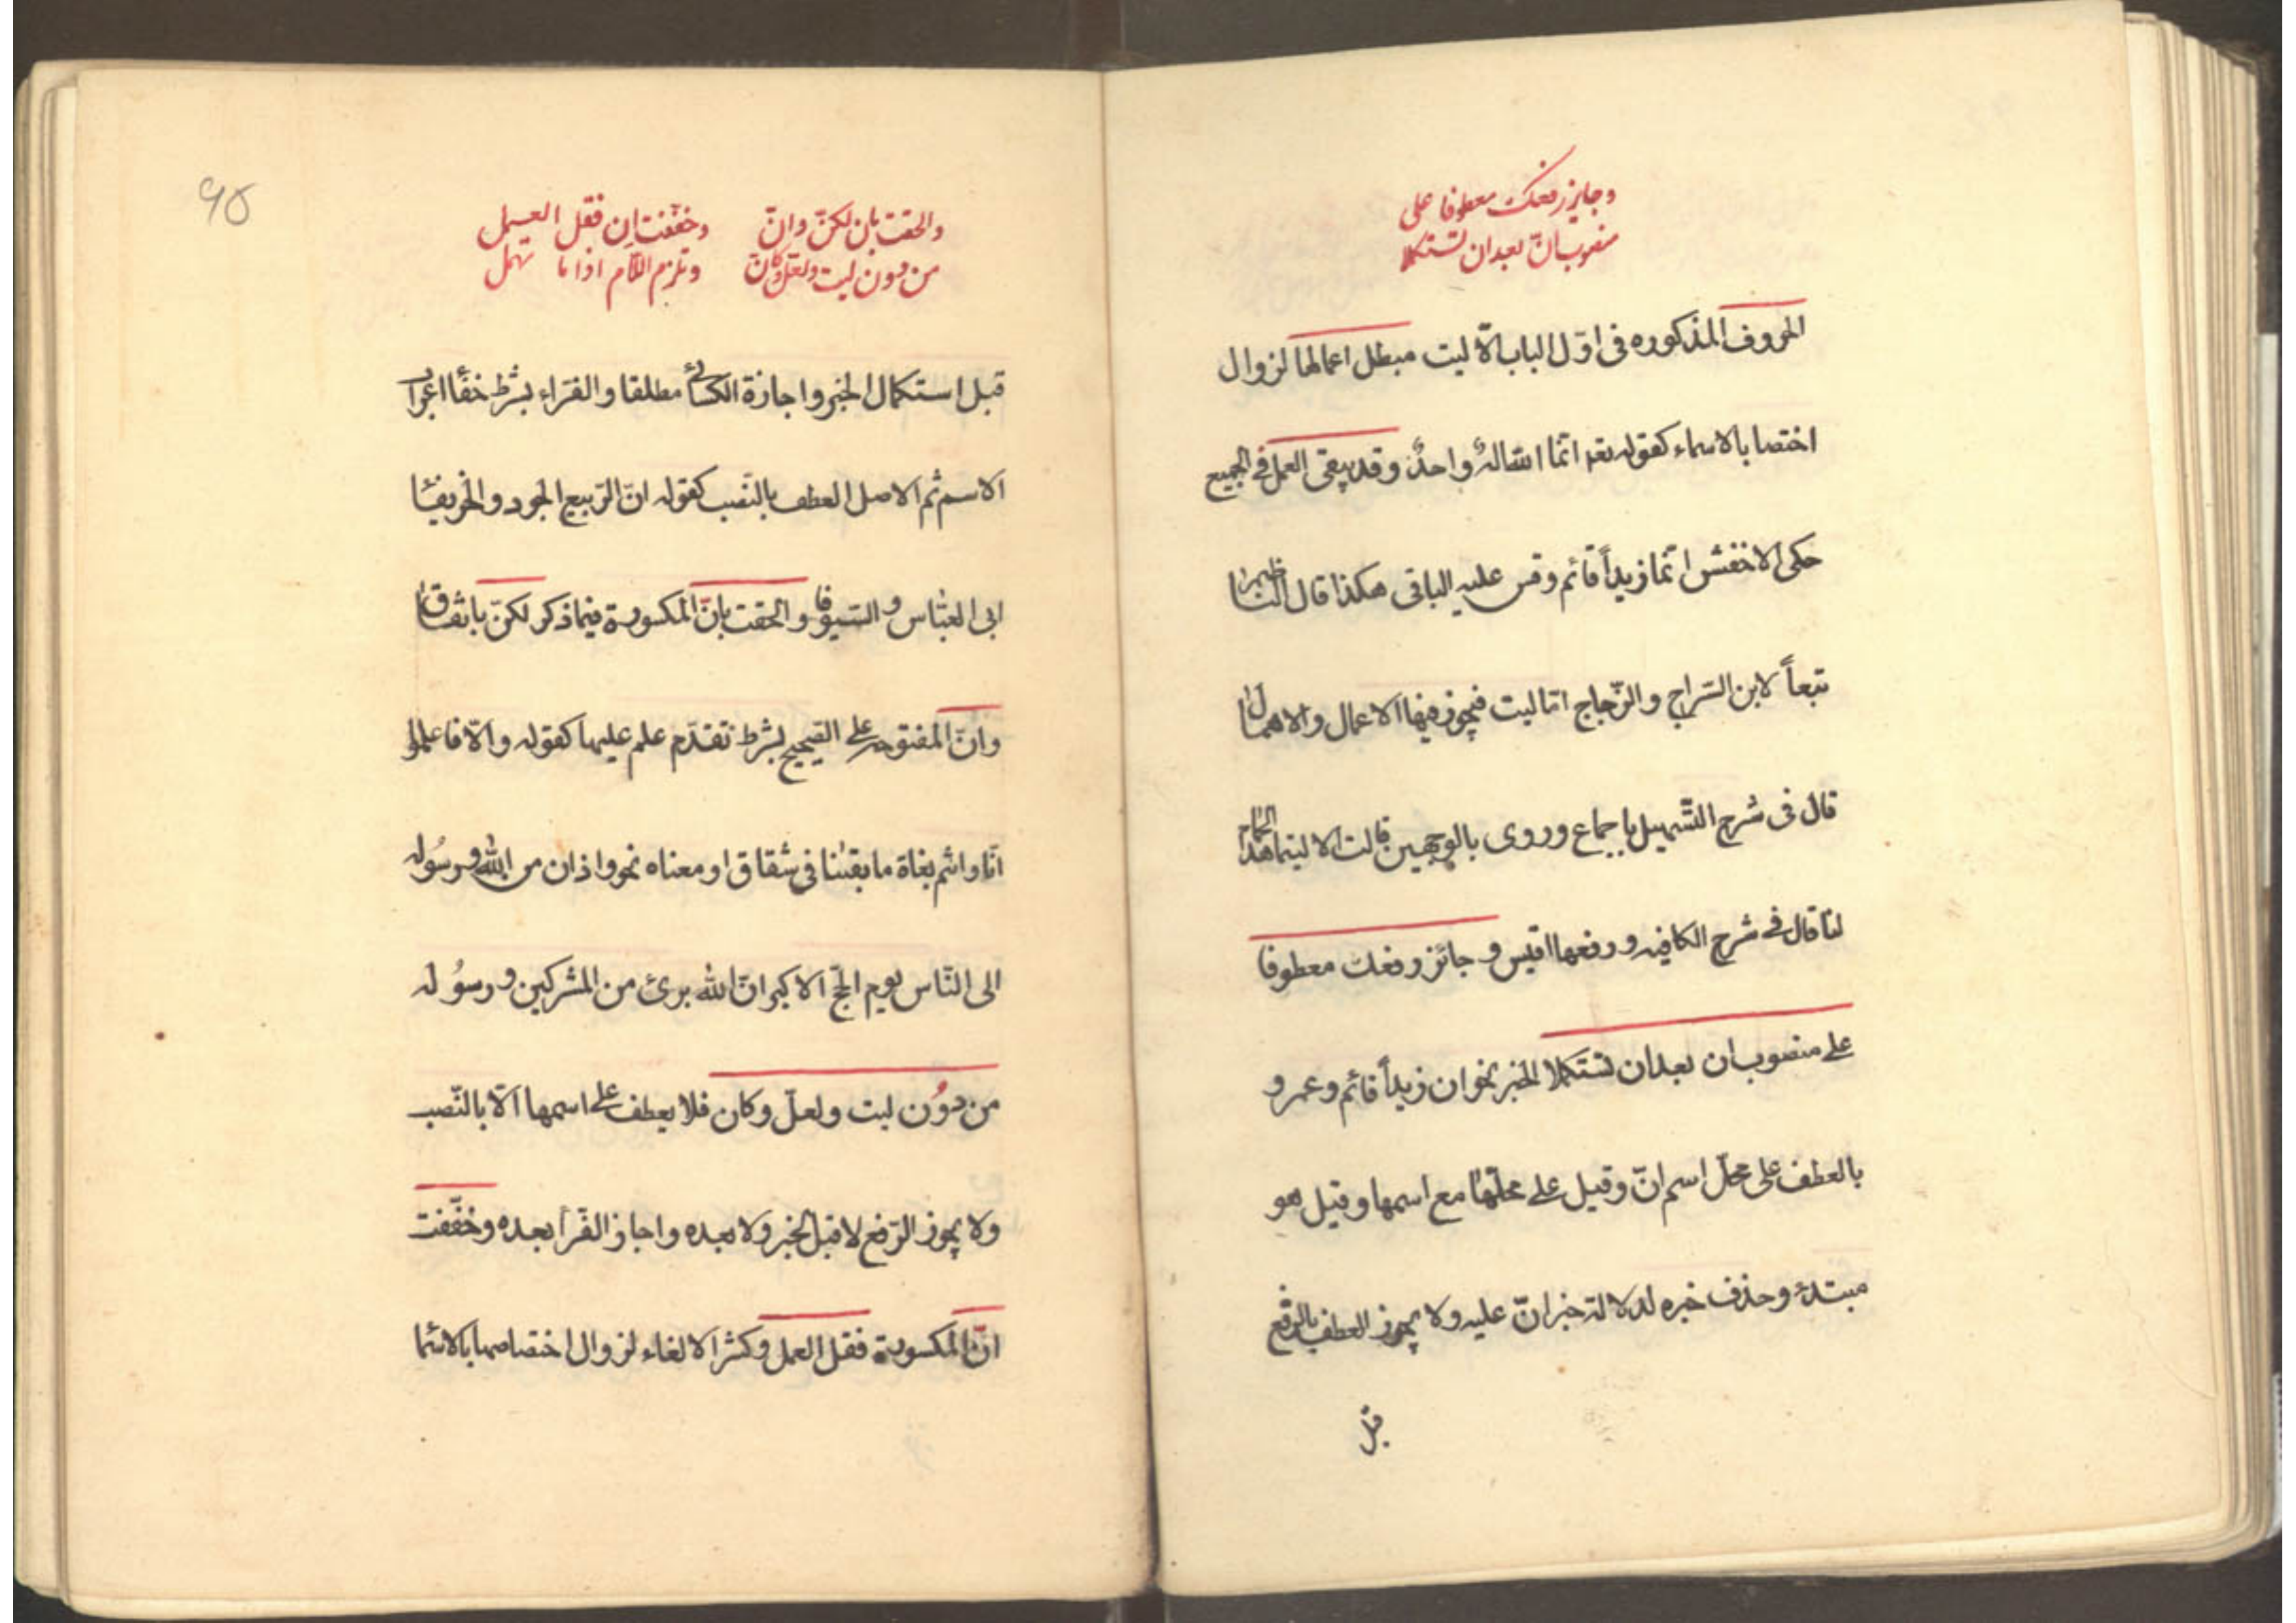 وجایز رفعک معطوفا علی
منصوب انّ بعد ان تستکملا
الحروف المذکوره فی اوّل الباب الّا لیت مبطل اعمالها لزوال
اختصا بالاسماء کقوله تعه انّما اللّه الهٌ واحدٌ وقد یبقی العمل فی الجمیع
حکی الاخفش انّما زیداً قائم وقس علیه الباقی هکذا قال النّاظم
تبعاً لابن السّراج والزّجاج امّا لیت فیجوز فیها الاعمال والاهمال
قال فی شرح التّسهیل باجماع وروی بالوجهین قالت الا لیتما هذا الحمام
لنا قال فی شرح الکافیه ورفعها اقیس و جائز رفعک معطوفا
علی منصوب ان بعد ان تستکملا الخبر نحو ان زیداً قائم وعمرو
بالعطف علی محلّ اسم انّ وقیل علی محلّها مع اسمها وقیل هو
مبتدء وحذف خبره لدلالة خبر انّ علیه ولا یجوز العطف بالرّفع
قبل
۹۵
والحقت بان لکنّ وانّ وخفّفت ان فقل العمل
من دون لیت ولعلّ وکانّ وتلزم اللّام اذا ما تهمل
قبل استکمال الخبر واجازة الکسائی مطلقا والفرّاء بشرط خفأ اعراب
الاسم ثم الاصل العطف بالنّصب کقوله انّ الرّبیع الجود والخریفا
ابی العبّاس و السّیوفا والحقت بانّ المکسورة فیما ذکر لکنّ باتّفاق
وانّ المفتوحه علی الصّحیح بشرط تقدّم علم علیها کقوله والّا فاعلموا
انّا وانتم بغاة ما بقینا فی شقاق او معناه نحو واذان من اللّه ورسوله
الی النّاس یوم الحجّ الاکبر انّ اللّه برئ من المشرکین و رسوُله
من دوُن لیت ولعلّ وکان فلا یعطف علی اسمها الّا بالنّصب
ولا یجوز الرّفع لا قبل الخبر ولا بعده واجاز الفرّأ بعده وخفّفت
انّ المکسورة فقل العمل وکثر الالغاء لزوال اختصاصها بالاسما